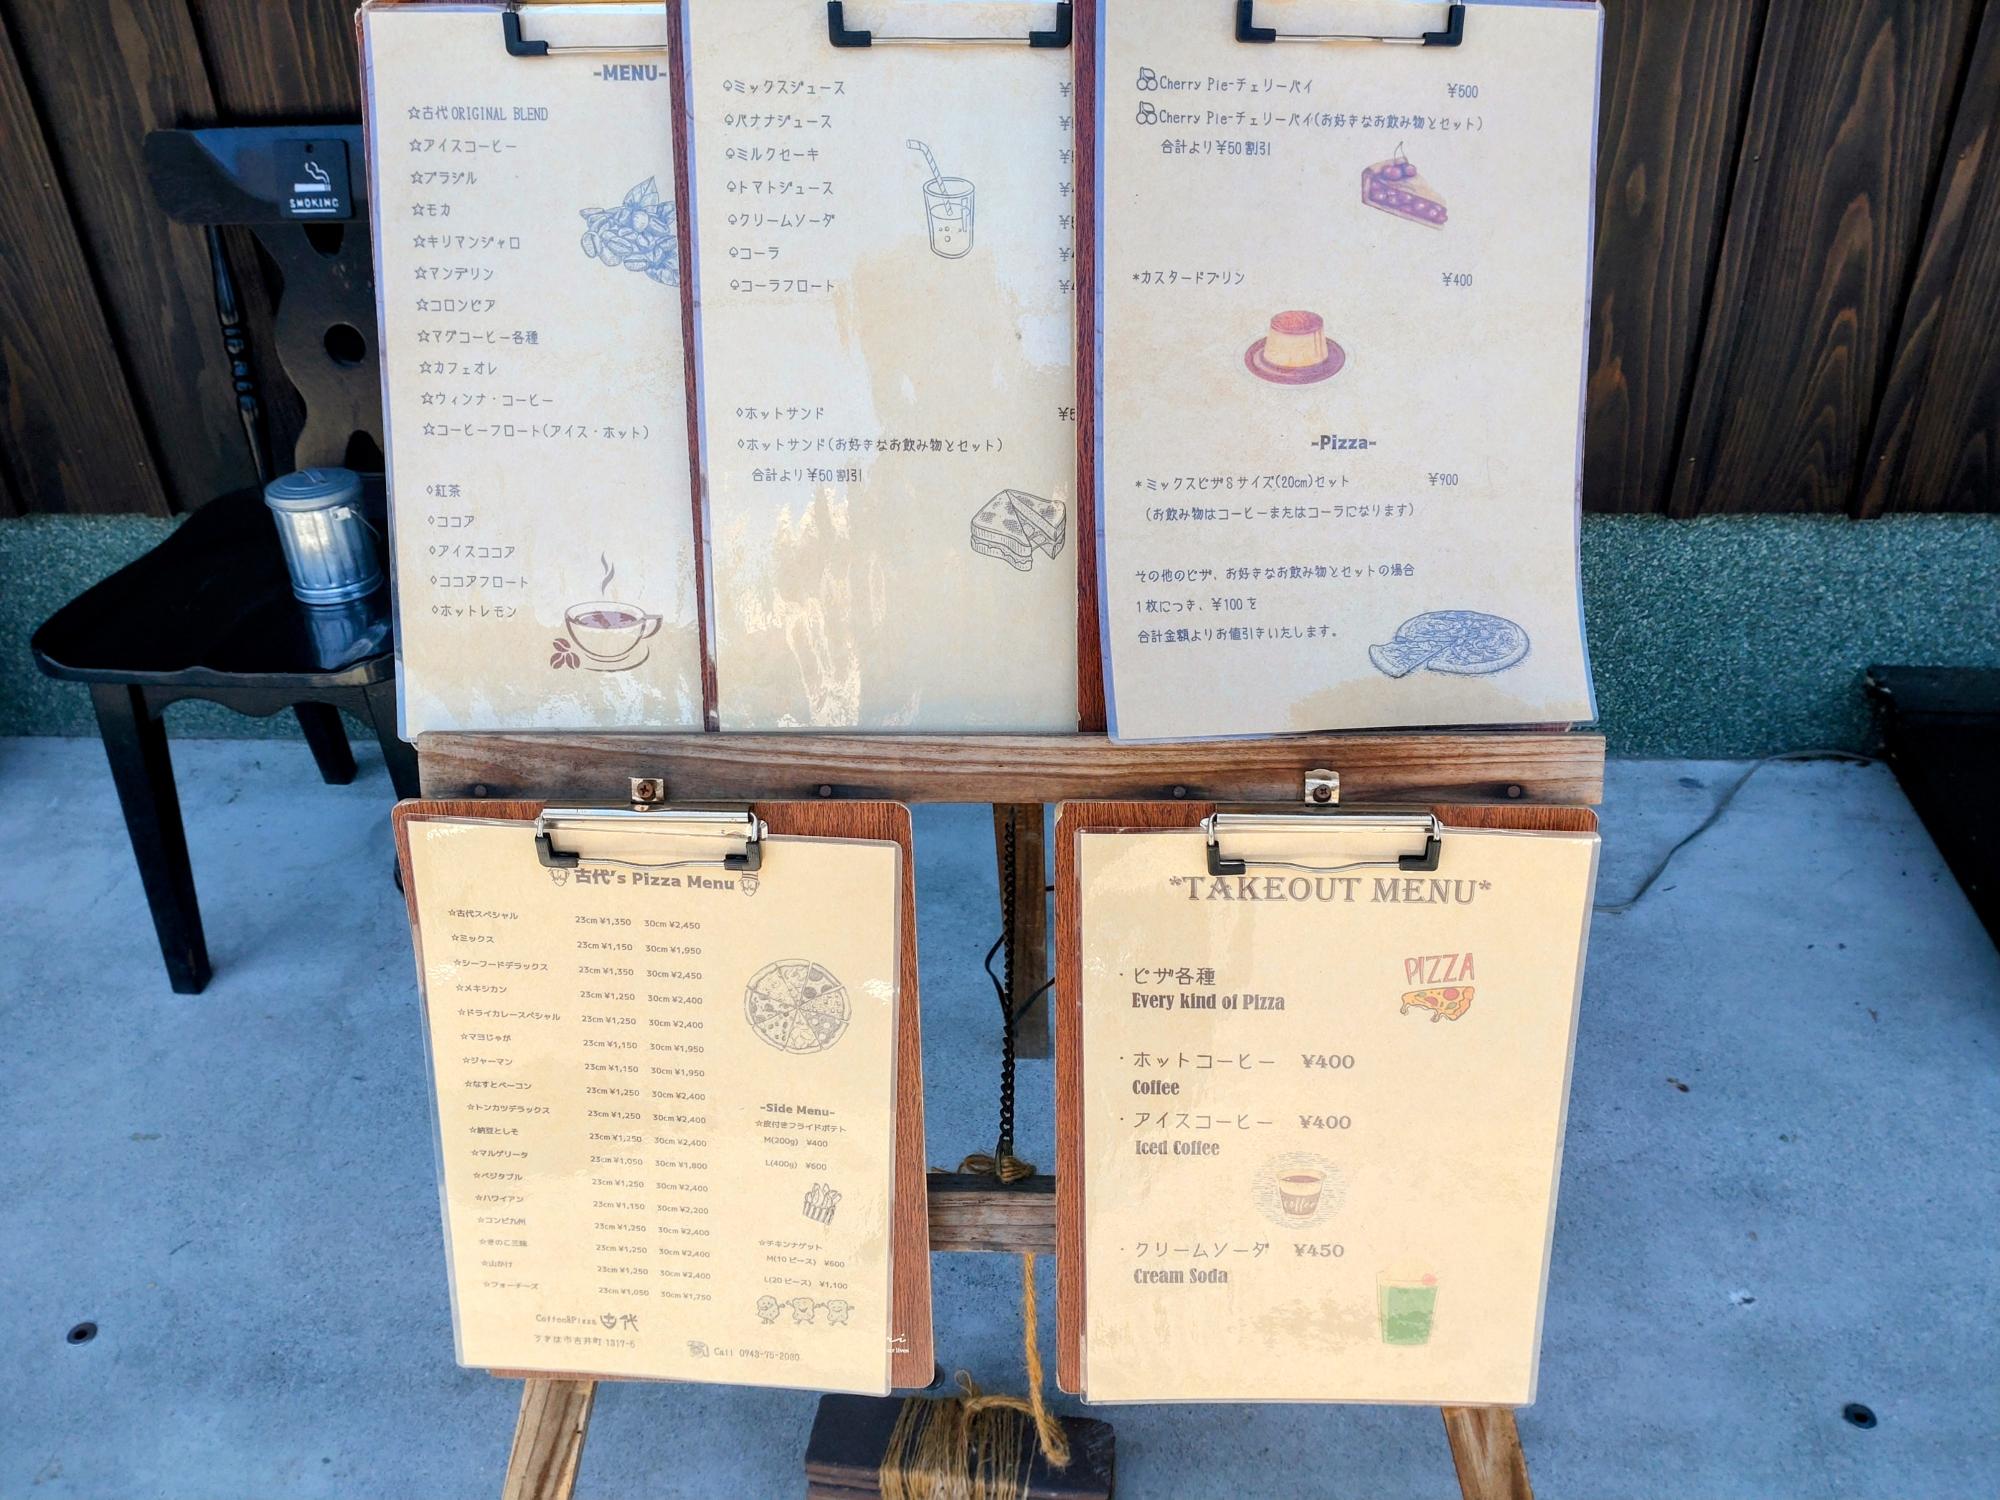 SMOKING
-MENU-
☆古代 ORIGINAL BLEND
☆アイスコーヒー
☆ブラジル
☆モカ
☆キリマンジャロ
☆マンデリン
☆コロンビア
☆マグコーヒー各種
☆カフェオレ
☆ウィンナ・コーヒー
☆コーヒーフロート(アイス・ホット)
◇紅茶
◇ココア
◇アイスココア
◇ココアフロート
◇ホットレモン
♤ミックスジュース ¥
♤バナナジュース ¥
♤ミルクセーキ ¥
♤トマトジュース ¥
♤クリームソーダ ¥
♤コーラ ¥
♤コーラフロート ¥
◇ホットサンド ¥
◇ホットサンド(お好きなお飲み物とセット)
合計より¥50 割引
Cherry Pie-チェリーパイ ¥500
Cherry Pie-チェリーパイ(お好きなお飲み物とセット)
合計より¥50 割引
*カスタードプリン ¥400
-Pizza-
*ミックスピザSサイズ(20cm)セット ¥900
(お飲み物はコーヒーまたはコーラになります)
その他のピザ、お好きなお飲み物とセットの場合
1枚につき、¥100を
合計金額よりお値引きいたします。
古代's Pizza Menu
☆古代スペシャル 23cm ¥1,350 30cm ¥2,450
☆ミックス 23cm ¥1,150 30cm ¥1,950
☆シーフードデラックス 23cm ¥1,350 30cm ¥2,450
☆メキシカン 23cm ¥1,250 30cm ¥2,400
☆ドライカレースペシャル 23cm ¥1,250 30cm ¥2,400
☆マヨじゃが 23cm ¥1,150 30cm ¥1,950
☆ジャーマン 23cm ¥1,150 30cm ¥1,950
☆なすとベーコン 23cm ¥1,250 30cm ¥2,400
☆トンカツデラックス 23cm ¥1,250 30cm ¥2,400
☆納豆としそ 23cm ¥1,250 30cm ¥2,400
☆マルゲリータ 23cm ¥1,050 30cm ¥1,800
☆ベジタブル 23cm ¥1,250 30cm ¥2,400
☆ハワイアン 23cm ¥1,150 30cm ¥2,200
☆コンビ九州 23cm ¥1,250 30cm ¥2,400
☆きのこ三昧 23cm ¥1,250 30cm ¥2,400
☆山かけ 23cm ¥1,250 30cm ¥2,400
☆フォーチーズ 23cm ¥1,050 30cm ¥1,750
-Side Menu-
☆皮付きフライドポテト
M(200g) ¥400
L(400g) ¥600
☆チキンナゲット
M(10 ピース) ¥600
L(20 ピース) ¥1,100
Coffee&Pizza 古代
うきは市吉井町 1317-6
Call 0943-75-2080
*TAKEOUT MENU*
PIZZA
・ピザ各種
Every kind of Pizza
・ホットコーヒー ¥400
Coffee
・アイスコーヒー ¥400
Iced Coffee
coffee
・クリームソーダ ¥450
Cream Soda